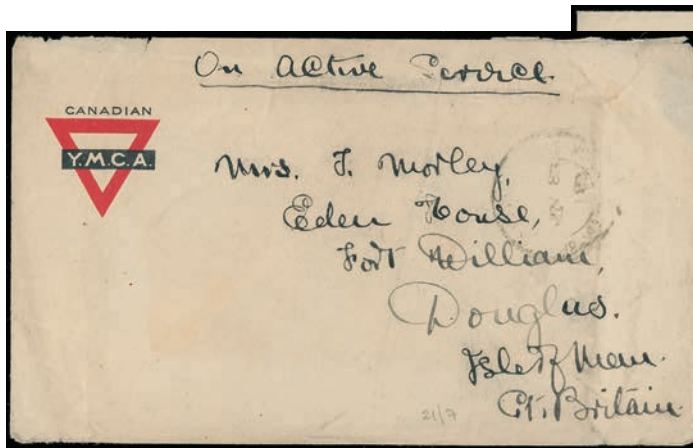 On Active Service
CANADIAN
Y.M.C.A.
Mrs. J. Morley,
Eden House,
Fort William,
Douglas.
Isle of Man.
Gt. Britain
21/7